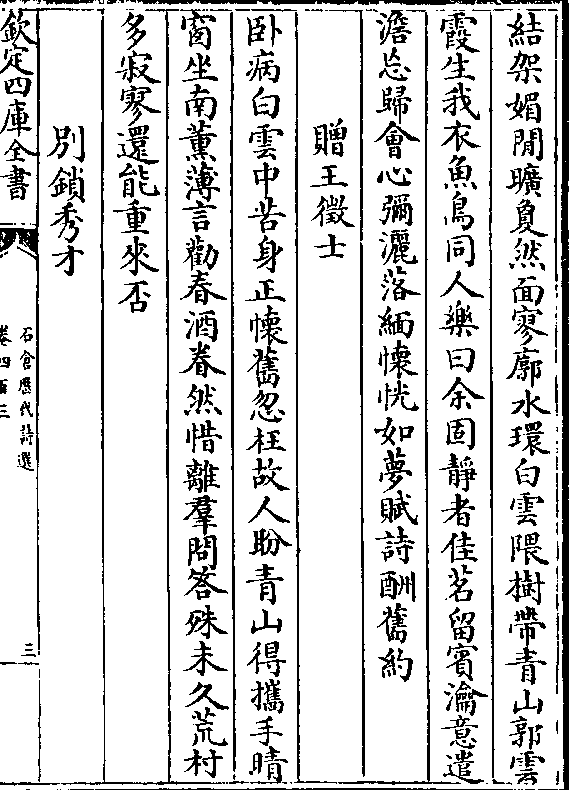 結架媚閒曠敻然面寥廓水環白雲隈樹帶青山郭雲
霞生我衣魚鳥同人樂曰余固靜者佳茗留賓瀹意遣
澹忘歸會心彌灑落緬懷恍如夢賦詩酬舊約
贈王徵士
卧病白雲中苦身正懷舊忽枉故人盼青山得攜手晴
窗坐南薰薄言勸春酒眷然惜離羣問答殊未久荒村
多寂寥還能重來否
別鎖秀才
欽定四庫全書
石倉歷代詩選
卷四百三
三